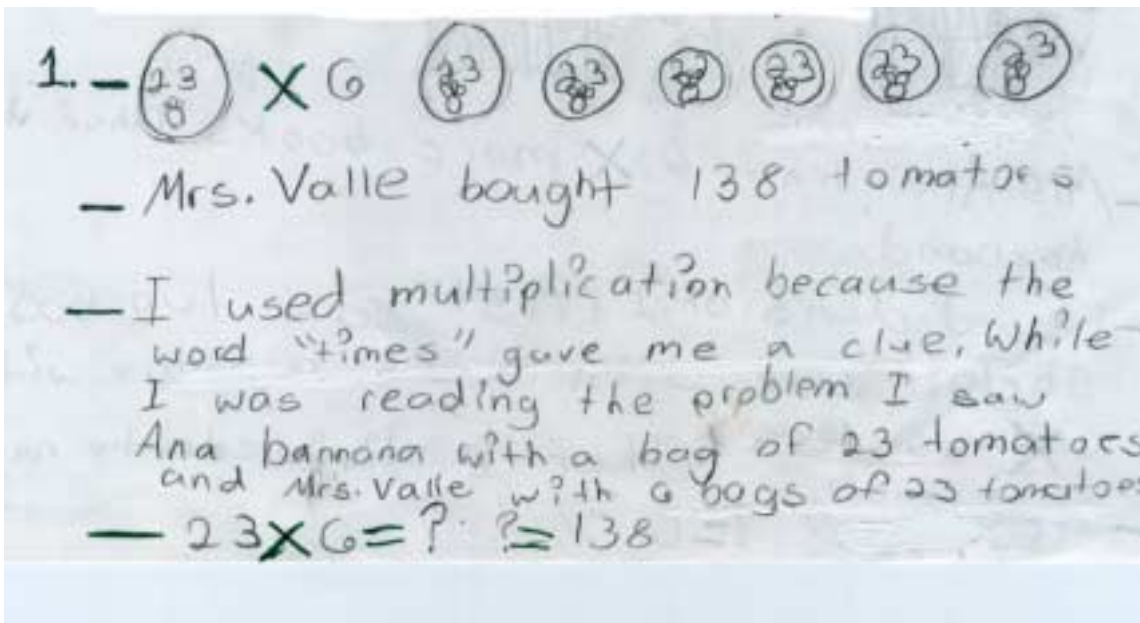 1. - 23 8 × 6 23 8 23 8 23 8 23 8 23 8 23 8
- Mrs. Valle bought 138 tomatoes
- I used multiplication because the
word "times" gave me a clue. While
I was reading the problem I saw
Ana bannana with a bag of 23 tomatoes
and Mrs. Valle with 6 bags of 23 tomatoes
- 23×6=? ?=138